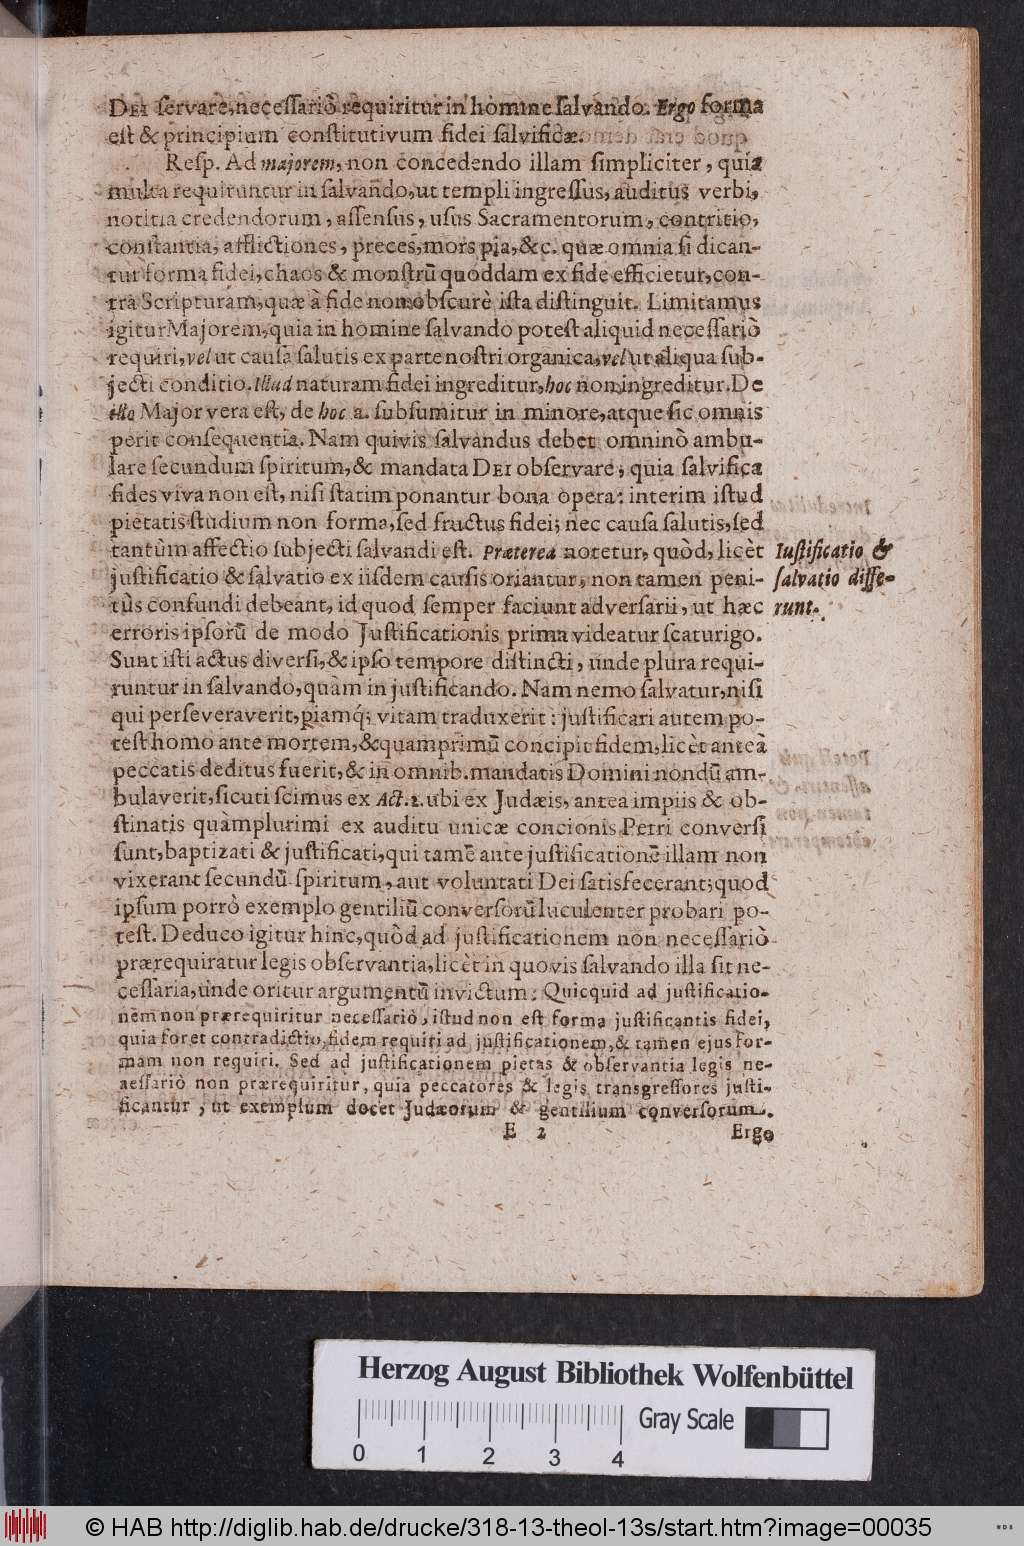 DEI ſervare, neceſſariò requiritur in homine ſalvando. Ergo forma
eſt & principium conſtitutivum fidei ſalvificæ.
Reſp. Ad majorem, non concedendo illam ſimpliciter, quia
multa requiruntur in ſalvando, ut templi ingreſſus, auditus verbi,
notitia credendorum, aſſenſus, uſus Sacramentorum, contritio,
conſtantia, afflictiones, preces, mors pia, &c. quæ omnia ſi dican-
tur forma fidei, chaos & monſtrū quoddam ex fide efficietur, con-
tra Scripturam, quæ à fide non obſcurè iſta diſtinguit. Limitamus
igitur Majorem, quia in homine ſalvando poteſt aliquid neceſſariò
requiri, vel ut cauſa ſalutis ex parte noſtri organica, vel ut aliqua ſub-
jecti conditio. Illud naturam fidei ingreditur, hoc non ingreditur. De
illo Major vera eſt, de hoc a. ſubſumitur in minore, atque ſic omnis
perit conſequentia. Nam quivis ſalvandus debet omninò ambu-
lare ſecundum ſpiritum, & mandata DEI obſervare, quia ſalvifica
fides viva non eſt, niſi ſtatim ponantur bona opera: interim iſtud
pietatis ſtudium non forma, ſed fructus fidei; nec cauſa ſalutis, ſed
tantùm affectio ſubjecti ſalvandi eſt. Præterea notetur, quòd, licèt
juſtificatio & ſalvatio ex iiſdem cauſis oriantur, non tamen peni-
tùs confundi debeant, id quod ſemper faciunt adverſarii, ut hæc
erroris ipſorū de modo Juſtificationis prima videatur ſcaturigo.
Sunt iſti actus diverſi, & ipſo tempore diſtincti, unde plura requi-
runtur in ſalvando, quàm in juſtificando. Nam nemo ſalvatur, niſi
qui perſeveraverit, piamq́; vitam traduxerit: juſtificari autem po-
teſt homo ante mortem, & quamprimū concipit fidem, licèt anteà
peccatis deditus fuerit, & in omnib. mandatis Domini nondū am-
bulaverit, ſicuti ſcimus ex Act. 2. ubi ex Judæis, antea impiis & ob-
ſtinatis quàmplurimi ex auditu unicæ concionis Petri converſi
ſunt, baptizati & juſtificati, qui tamē ante juſtificationē illam non
vixerant ſecundū ſpiritum, aut voluntati Dei ſatisfecerant; quod
ipſum porrò exemplo gentiliū converſorū luculenter probari po-
teſt. Deduco igitur hinc, quòd ad juſtificationem non neceſſariò
prærequiratur legis obſervantia, licèt in quovis ſalvando illa ſit ne-
ceſſaria, unde oritur argumentū invictum: Quicquid ad juſtificatio-
nem non prærequiritur neceſſariò, iſtud non eſt forma juſtificantis fidei,
quia foret contradictio, fidem requiri ad juſtificationem, & tamen ejus for-
mam non requiri. Sed ad juſtificationem pietas & obſervantia legis ne-
ceſſariò non prærequiritur, quia peccatores & legis transgreſſores juſti-
ficantur, ut exemplum docet Judæorum & gentilium converſorum.
E 2 Ergo
Iuſtificatio &
ſalvatio diffe-
runt.
Herzog August Bibliothek Wolfenbüttel
0 1 2 3 4 Gray Scale
© HAB http://diglib.hab.de/drucke/318-13-theol-13s/start.htm?image=00035